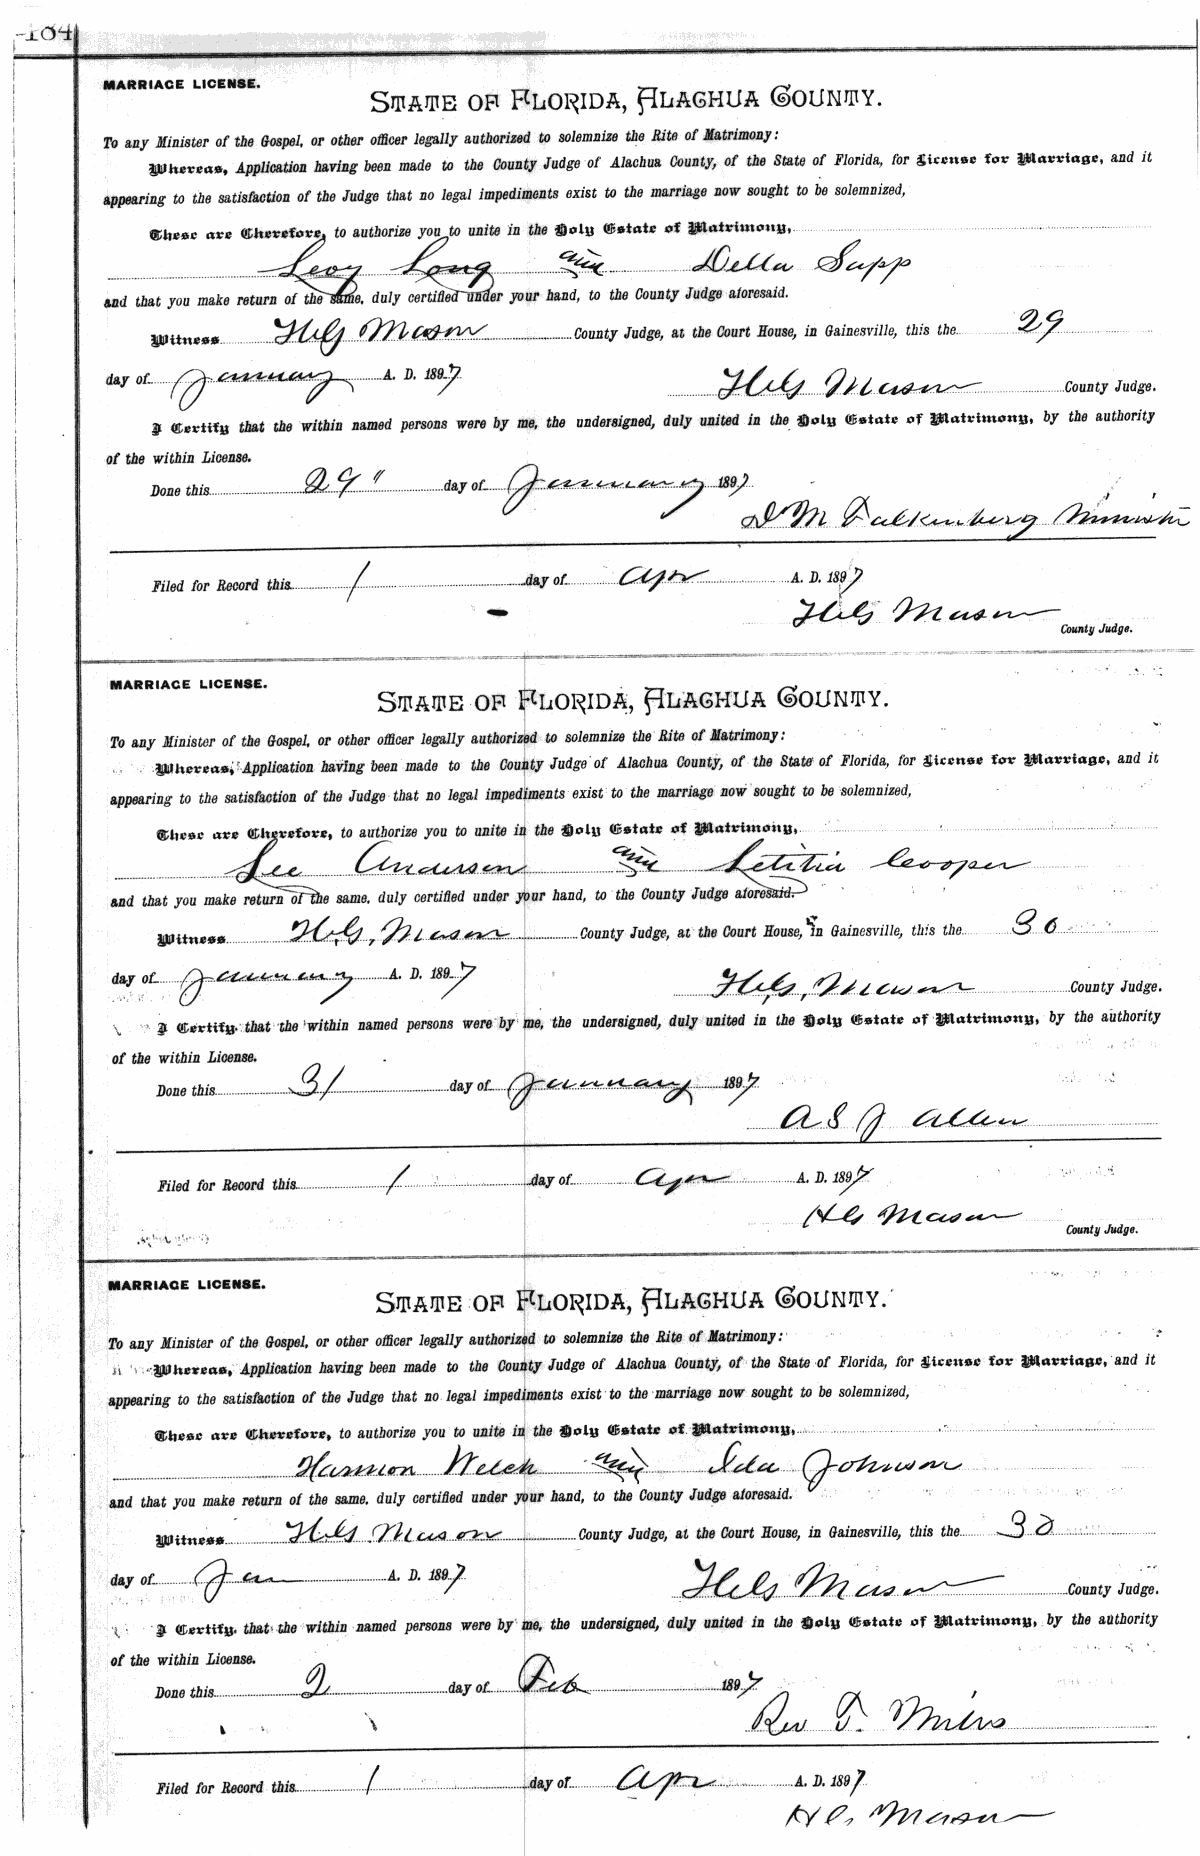 184
MARRIAGE LICENSE.
STATE OF FLORIDA, ALACHUA COUNTY.
To any Minister of the Gospel, or other officer legally authorized to solemnize the Rite of Matrimony:
Whereas, Application having been made to the County Judge of Alachua County, of the State of Florida, for License for Marriage, and it
appearing to the satisfaction of the Judge that no legal impediments exist to the marriage now sought to be solemnized,
These are Therefore, to authorize you to unite in the Holy Estate of Matrimony,
Levy Long and Della Sapp
and that you make return of the same, duly certified under your hand, to the County Judge aforesaid.
Witness H.G. Mason County Judge, at the Court House, in Gainesville, this the 29
day of January A. D. 1897
H.G. Mason County Judge.
I Certify that the within named persons were by me, the undersigned, duly united in the Holy Estate of Matrimony, by the authority
of the within License.
Done this 29" day of January 1897
D M Falkenberg Minister
Filed for Record this 1 day of Apr A. D. 1897
H.G. Mason
County Judge.
MARRIAGE LICENSE.
STATE OF FLORIDA, ALACHUA COUNTY.
To any Minister of the Gospel, or other officer legally authorized to solemnize the Rite of Matrimony:
Whereas, Application having been made to the County Judge of Alachua County, of the State of Florida, for License for Marriage, and it
appearing to the satisfaction of the Judge that no legal impediments exist to the marriage now sought to be solemnized,
These are Therefore, to authorize you to unite in the Holy Estate of Matrimony,
Lee Anderson and Letitia Cooper
and that you make return of the same, duly certified under your hand, to the County Judge aforesaid.
Witness H.G. Mason County Judge, at the Court House, in Gainesville, this the 30
day of January A. D. 1897
H.G. Mason County Judge.
I Certify that the within named persons were by me, the undersigned, duly united in the Holy Estate of Matrimony, by the authority
of the within License.
Done this 31 day of January 1897
A S J Allen
Filed for Record this 1 day of Apr A. D. 1897
H G Mason
County Judge.
MARRIAGE LICENSE.
STATE OF FLORIDA, ALACHUA COUNTY.
To any Minister of the Gospel, or other officer legally authorized to solemnize the Rite of Matrimony:
Whereas, Application having been made to the County Judge of Alachua County, of the State of Florida, for License for Marriage, and it
appearing to the satisfaction of the Judge that no legal impediments exist to the marriage now sought to be solemnized,
These are Therefore, to authorize you to unite in the Holy Estate of Matrimony,
Harmon Welch and Ida Johnson
and that you make return of the same, duly certified under your hand, to the County Judge aforesaid.
Witness H.G. Mason County Judge, at the Court House, in Gainesville, this the 30
day of Jan A. D. 1897
H.G. Mason County Judge.
I Certify that the within named persons were by me, the undersigned, duly united in the Holy Estate of Matrimony, by the authority
of the within License.
Done this 2 day of Feb 1897
Rev T.
Filed for Record this 1 day of Apr A. D. 1897
H G Mason